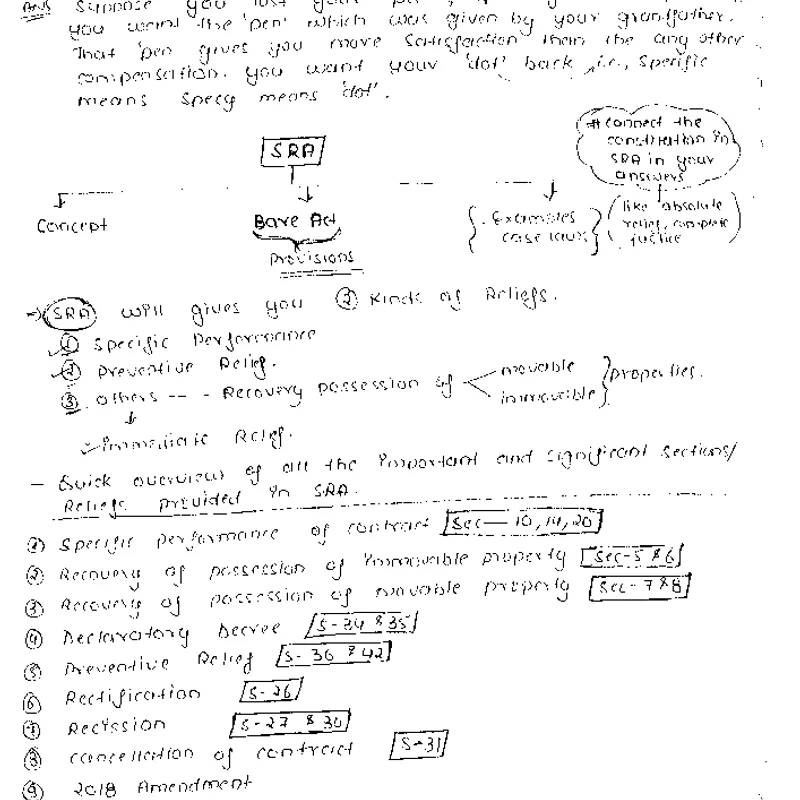 Ans Suppose you lost your pen,
you want the 'pen' which was given by your grandfather.
That 'pen gives you more satisfaction then the any other
compensation. you want your 'dot' back i.e., specific
means specy means 'dot'.
SRA
# connect the
constitution in
SRA in your
answers
(like absolute
relief, complete
justice)
Concept
Bare Act
Provisions
{. Examples
case laws}
→ SRA will gives you ③ kinds of Reliefs.
① Specific Performance
② Preventive Relief.
③ others -- - Recovery possession of movable
immovable } properties.
Immediate Relief.
- Quick overview of all the important and significant sections/
Reliefs provided in SRA.
① Specific performance of contract Sec— 10, 14, 20
② Recovery of possession of immovable property Sec-5 & 6
③ Recovery of possession of movable property Sec-7 & 8
④ Declaratory Decree S-34 & 35
⑤ Preventive Relief S-36 & 42
⑥ Rectification S-26
⑦ Recission S-27 & 30
⑧ cancellation of contract S-31
⑨ 2018 Amendment